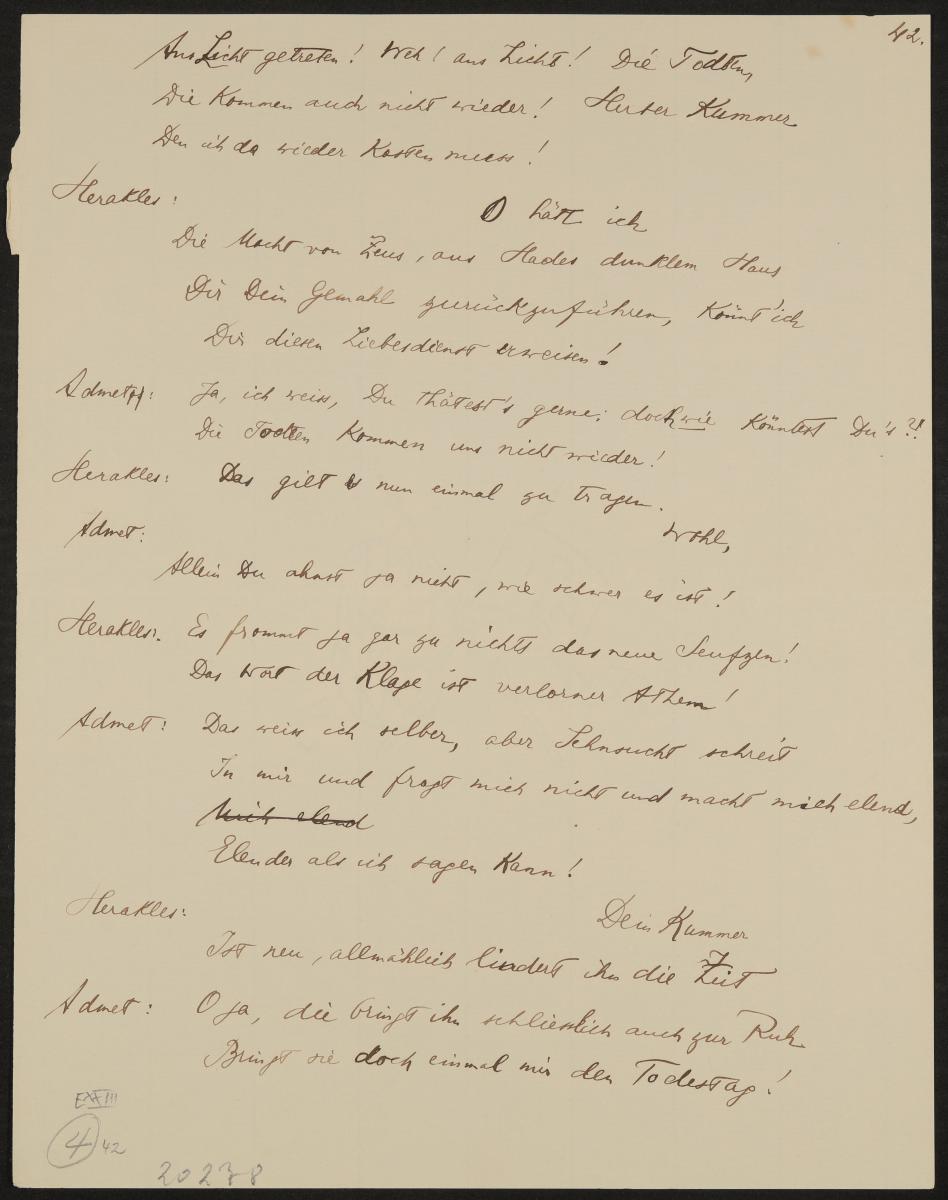 42.
Ans Licht getreten! Weh! ans Licht! Die Todten,
Die Kommen auch nicht wieder! Herber Kummer
Den ich da wieder Kosten muss!
Herakles:
O hätt ich
Die Macht von Zeus, aus Hades dunklem Haus
Dir Dein Gemahl zurückzuführen, Könnt' ich
Dir diesen Liebesdienst erweisen!
Admet: Ja, ich weiss, Du thätest's gerne; doch wie Könntest Du's?!
Die Todten Kommen uns nicht wieder!
Herakles: Das gilt es nun einmal zu tragen.
Wohl,
Admet:
Allein Du ahnst ja nicht, wie schwer es ist!
Herakles: Es frommt ja gar zu nichts das neue Seufzen!
Das Wort der Klage ist verlorner Athem!
Admet: Das weiss ich selber, aber Sehnsucht schreit
In mir und fragt mich nicht und macht mich elend,
Mich elend
Elender als ich sagen Kann!
Herakles: Dein Kummer
Ist neu, allmählich lindert ihn die Zeit
Admet: O ja, die bringt ihn schliesslich auch zur Ruh.
Bringt sie doch einmal mir den Todestag!
4 42
20278